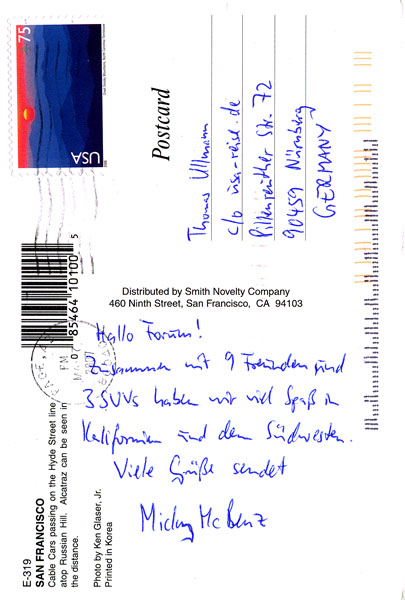 75
USA
Postcard
Thomas Ullmann
c/o usa-reise.de
Pillenreuther Str. 72
90459 Nürnberg
GERMANY
Distributed by Smith Novelty Company
460 Ninth Street, San Francisco, CA 94103
Hallo Forum!
Zusammen mit 9 Freunden und
3 SUVs haben wir viel Spaß in
Kalifornien und dem Südwesten.
Viele Grüße sendet
Micky McBenz
0 85464 10100 5
E-319
SAN FRANCISCO
Cable Cars passing on the Hyde Street line
atop Russian Hill. Alcatraz can be seen in
the distance.
Photo by Ken Glaser, Jr.
Printed in Korea